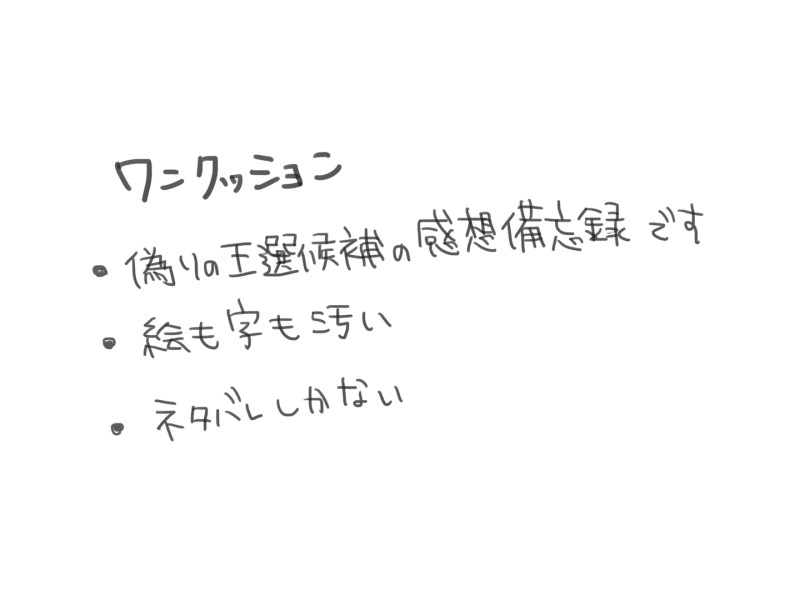 ワンクッション
• 偽りの王選候補の感想備忘録です
• 絵も字も汚い
• ネタバレしかない